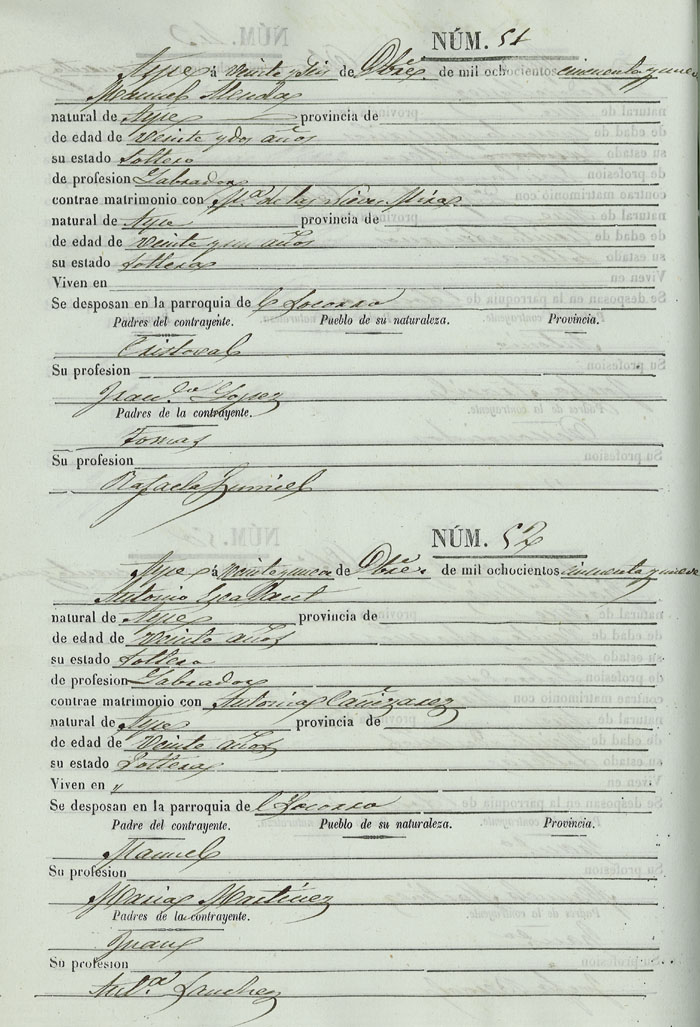 NÚM. 51
Aspe á veinte y seis de Obre. de mil ochocientos cincuenta y nueve
Manuel
natural de Aspe provincia de
de edad de veinte y dos años
su estado soltero
de profesion Labrador
contrae matrimonio con Mª de las Nieves Mira
natural de Aspe provincia de
de edad de veinte y un años
su estado soltera
Viven en
Se desposan en la parroquia de l Socorro
Padres del contrayente. Pueblo de su naturaleza. Provincia.
Cristoval
Su profesion
Franca Lopez
Padres de la contrayente.
Tomas
Su profesion
Rafaela
NÚM. 52
Aspe á veinte y nueve de Obre. de mil ochocientos cincuenta y nueve
Antonio
natural de Aspe provincia de
de edad de veinte años
su estado soltero
de profesion Labrador
contrae matrimonio con Antonia Cañizares
natural de Aspe provincia de
de edad de veinte años
su estado soltera
Viven en "
Se desposan en la parroquia de l Socorro
Padre del contrayente. Pueblo de su naturaleza. Provincia.
Manuel
Su profesion
Maria Martinez
Padres de la contrayente.
Juan
Su profesion
Antª Sanchez